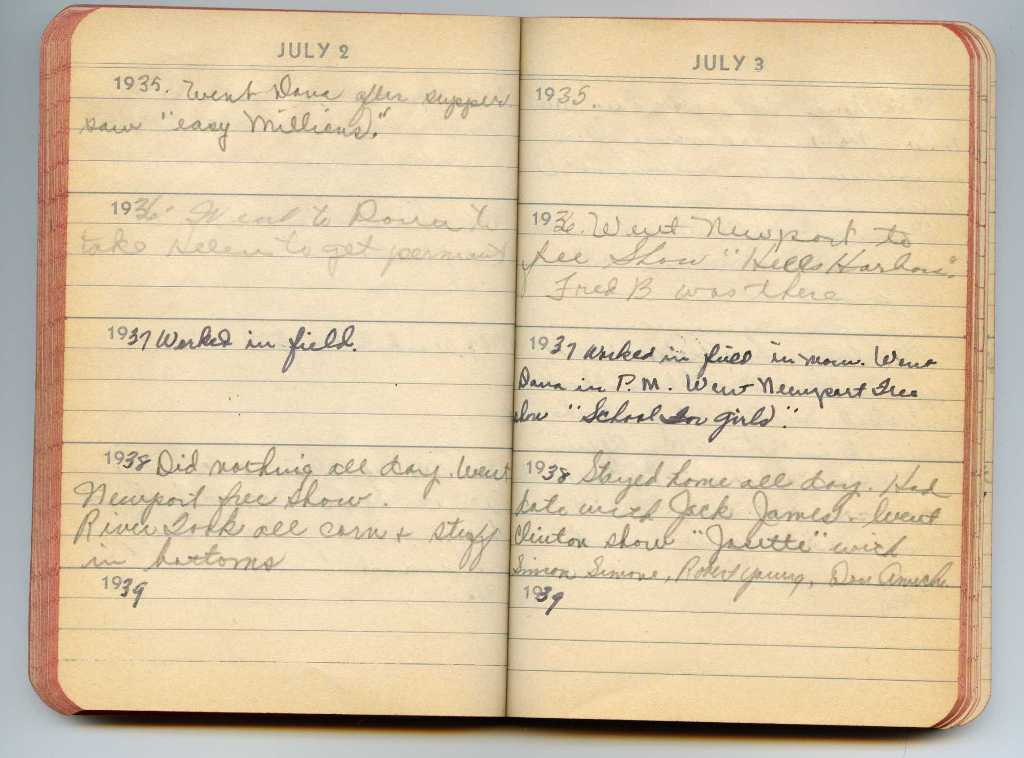 JULY 2
1935. Went Dana after supper
saw "easy Millions."
1936. Went to Dana to
take Helen to get permant
1937 Worked in field.
1938 Did nothing all day. Went
Newport free show.
River took all corn + stuff
in bottoms
1939
JULY 3
1935.
1936. Went Newport to
free Show "Hells Harbor."
Fred B was there
1937 worked in field in morn. Went
Dana in P.M. Went Newport free
show "School for girls."
1938 Stayed home all day. Had
date with Jack James. Went
Clinton show "Josette" with
Simon Simone, Robert Young, Don Ameche
1939